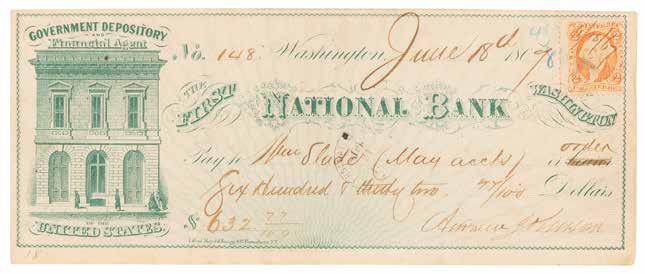 GOVERNMENT DEPOSITORY
AND
Financial Agent
OF THE
UNITED STATES.
No. 148. Washington, June 18th 1867
THE FIRST NATIONAL BANK WASHINGTON
Pay to Wm Slade (May accts) or order
Six Hundred & thirty two 77/100 Dollars
$632 77/100
Andrew Johnson